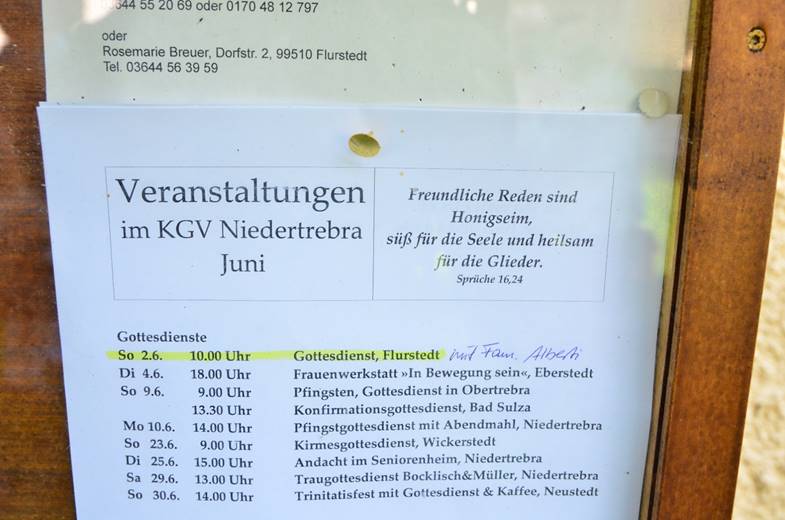 03644 55 20 69 oder 0170 48 12 797
oder
Rosemarie Breuer, Dorfstr. 2, 99510 Flurstedt
Tel. 03644 56 39 59
Veranstaltungen
im KGV Niedertrebra
Juni
Freundliche Reden sind
Honigseim,
süß für die Seele und heilsam
für die Glieder.
Sprüche 16,24
Gottesdienste
So 2.6. 10.00 Uhr Gottesdienst, Flurstedt mit Fam. Alberti
Di 4.6. 18.00 Uhr Frauenwerkstatt »In Bewegung sein«, Eberstedt
So 9.6. 9.00 Uhr Pfingsten, Gottesdienst in Obertrebra
13.30 Uhr Konfirmationsgottesdienst, Bad Sulza
Mo 10.6. 14.00 Uhr Pfingstgottesdienst mit Abendmahl, Niedertrebra
So 23.6. 9.00 Uhr Kirmesgottesdienst, Wickerstedt
Di 25.6. 15.00 Uhr Andacht im Seniorenheim, Niedertrebra
Sa 29.6. 13.00 Uhr Traugottesdienst Bocklisch&Müller, Niedertrebra
So 30.6. 14.00 Uhr Trinitatisfest mit Gottesdienst & Kaffee, Neustedt